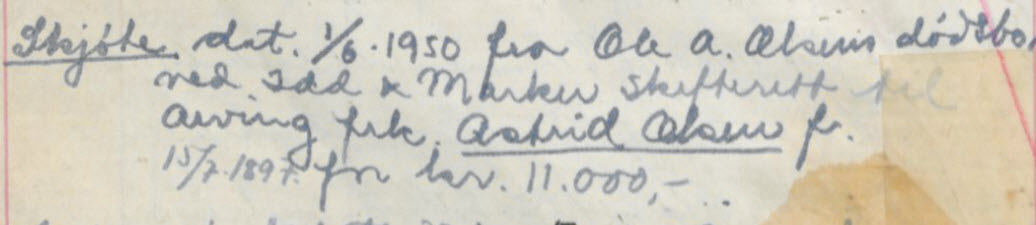 Skjøte dat. 1/6.1950 fra Ole A. Olsens dødsbo,
ved Idd & Marker Skifterett til
arving frk. Astrid Olsen f.
15/7.1897. for kr. 11.000,-